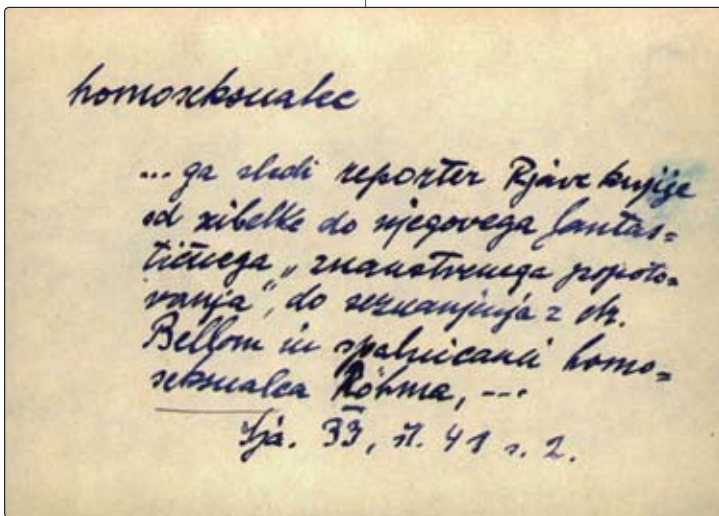 homoseksualec
... ga sledi reporter Rjave knjige
od zibelke do njegovega fantas=
tičnega „znanstvenega popoto=
vanja“, do seznanjenja z dr.
Bellom in spalnicami homo=
seksualca Röhma, ...
33, št. 41 s. 2.